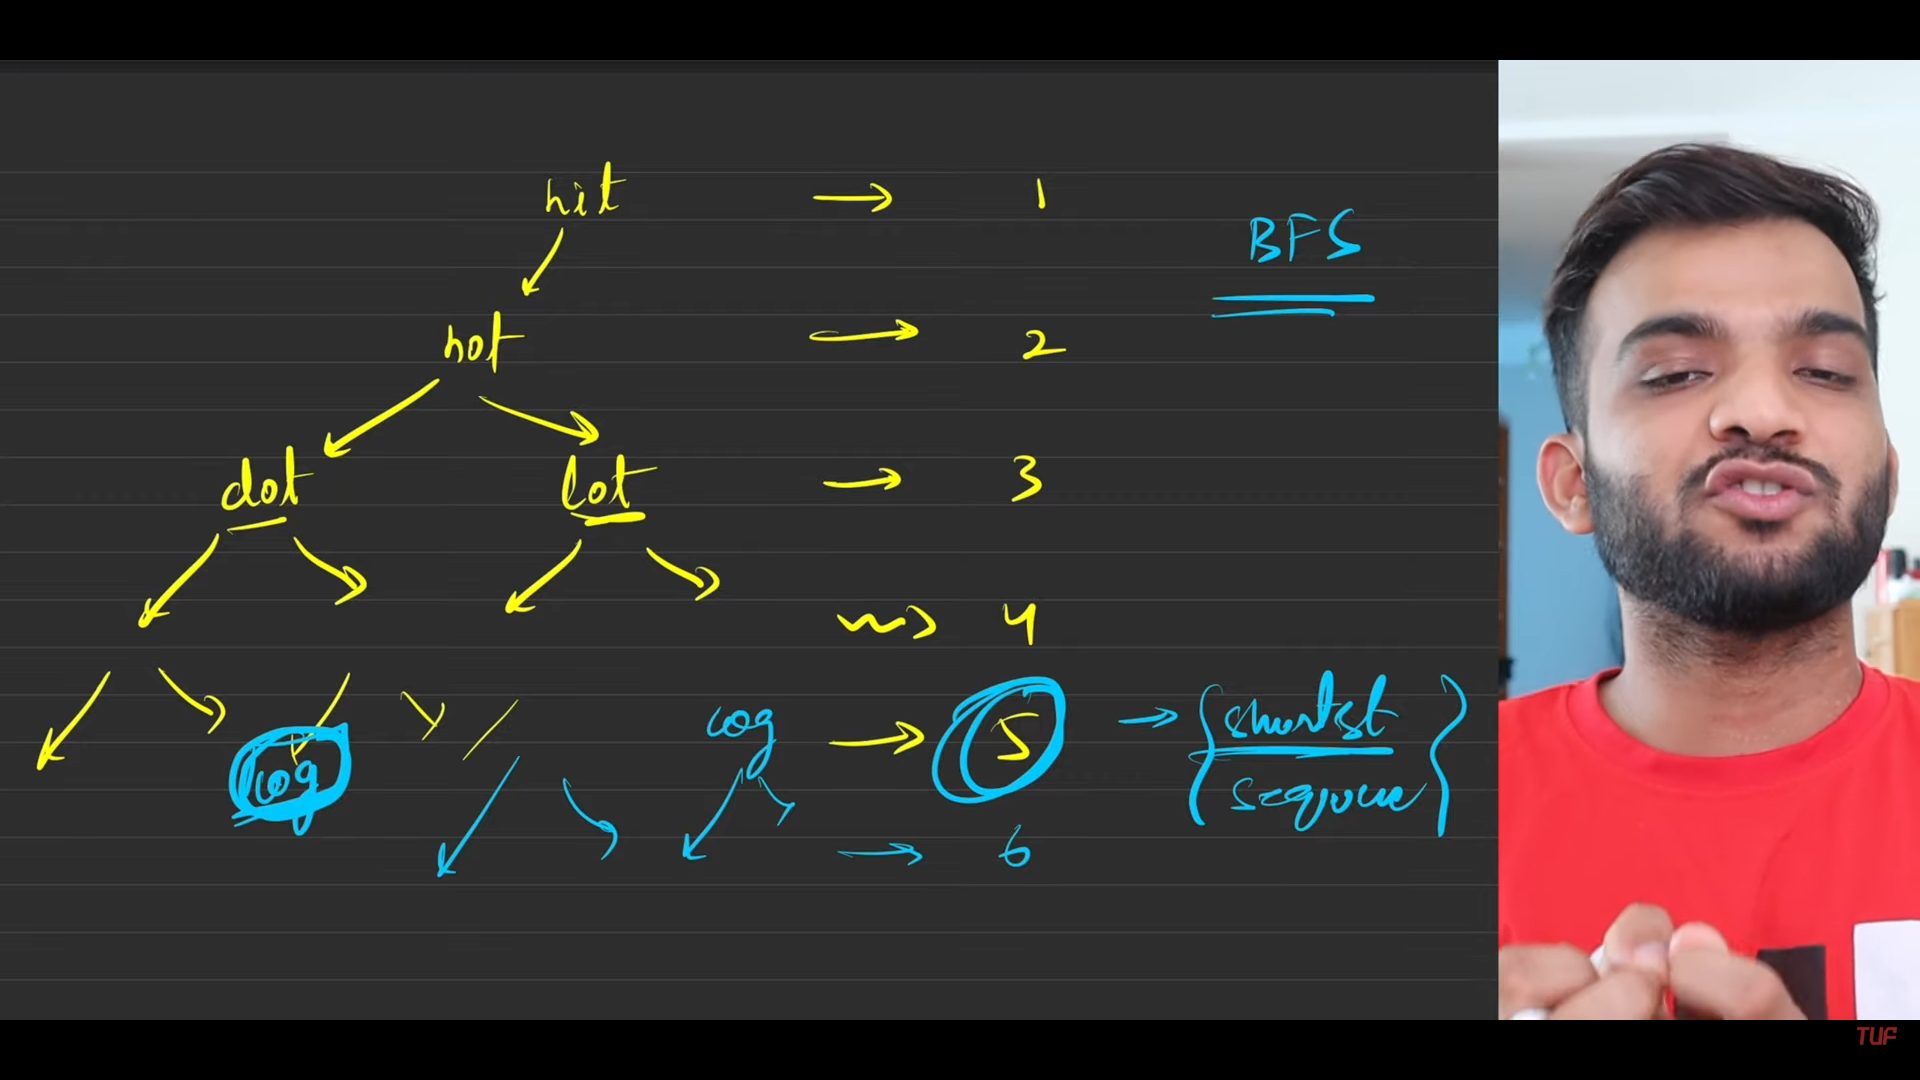 hit → 1
BFS
hot → 2
dot lot → 3
→ 4
cog cog → 5 → {shortest
sequence}
→ 6
TUF